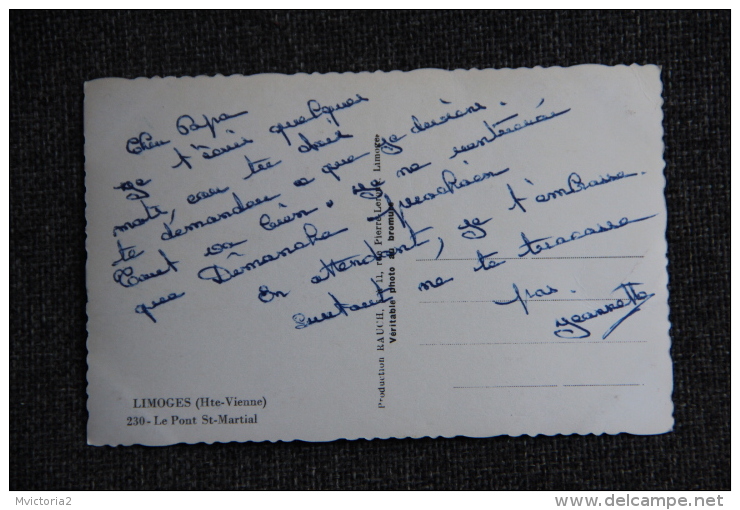 Cher Papa
je t'écris quelques
mots, car tu dois
te demander a que je deviens.
Tout va bien. Je ne rentrerai
que Dimanche prochain
En attendant, je t'embrasse.
Surtout ne te tracasse
pas.
Jeannette
Production RAUCH, 11, rue Pierre-Leroux, Limoges
Véritable photo au bromure
LIMOGES (Hte-Vienne)
230 - Le Pont St-Martial
Mvictoria2
www.delcampe.net